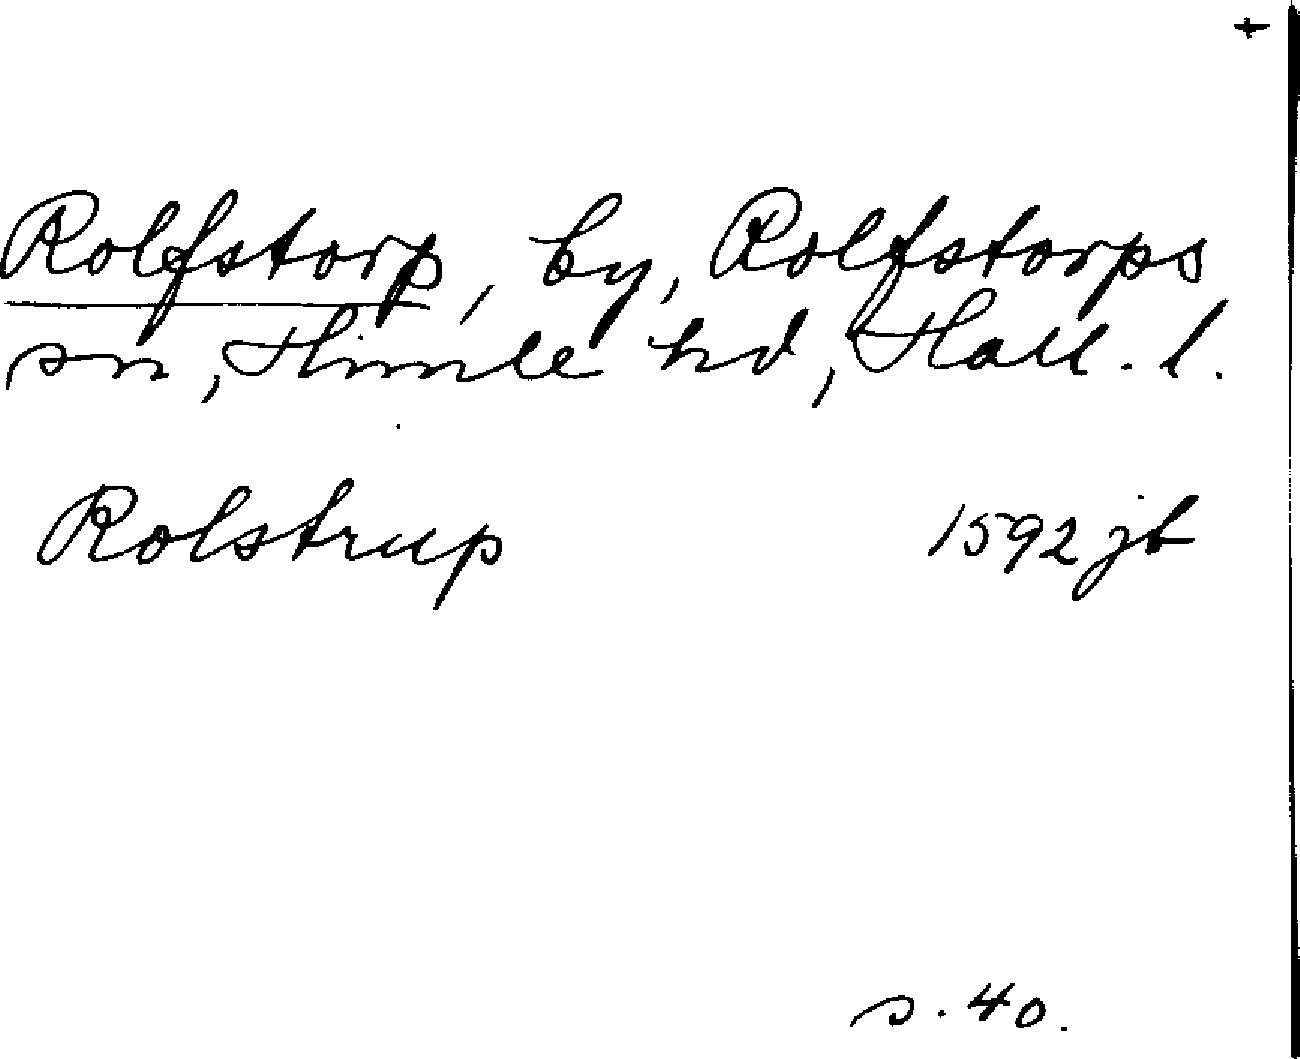 +
Rolfstorp, by, Rolfstorps
sn, Himle hd, Hall. l.
Rolstrup 1592 jb
s. 40.